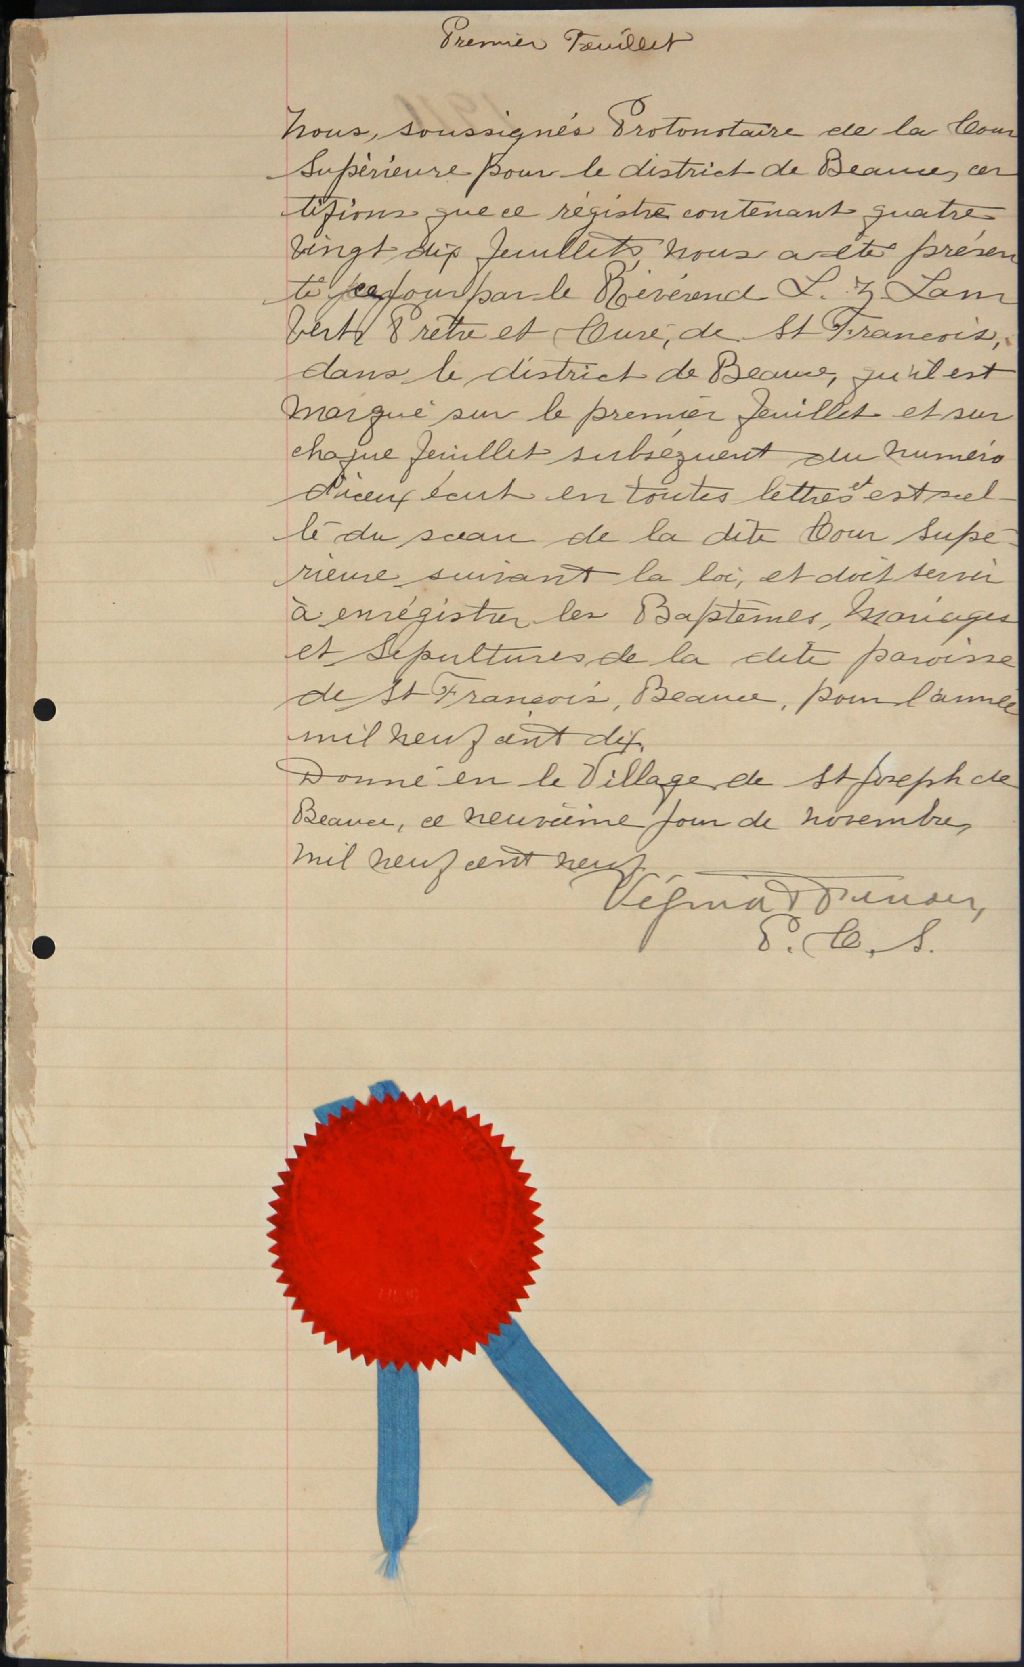 Premier Feuillet
Nous, soussignés Protonotaire de la Cour
Supérieure pour le district de Beauce, cer
tifions que ce régistre contenant quatre
vingt dix feuillets, nous a été présen
té ce jour par le Révérend L. Z Lam
bert, Prêtre et Curé, de St François,
dans le district de Beauce, qu'il est
marqué sur le premier feuillet et sur
chaque feuillet subséquent du numéro
d'iceux écrit en toutes lettres et est scel-
lé du sceau de la dite Cour Supé-
rieure suivant la loi, et doit servir
à enrégistrer les Baptêmes, Mariages
et Sépultures de la dite paroisse
de St François, Beauce, pour l'année
mil neuf cent dix.
Donné en le Village de St Joseph de
Beauce, ce neuvième jour de novembre,
mil neuf cent neuf.
P. C. S.